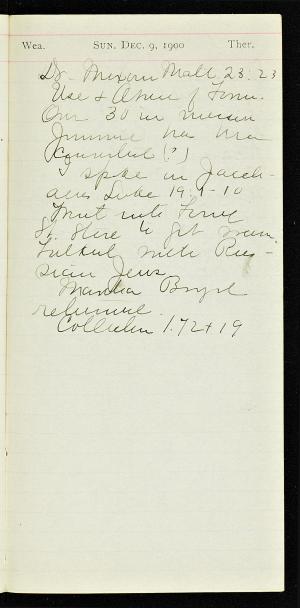 Wea. SUN. DEC. 9, 1900 Ther.
Dr. Mixon Matt 23:23
Use & Abuse of Form.
Our 30 in mission
Jimmie has been
converted (?)
I spoke on Zacch-
aeus Luke 19:1-10
Front
St. Store to get warm.
Talked with Rus-
sian Jews
Martha Boyd
returned.
Collection 1.72 + 19